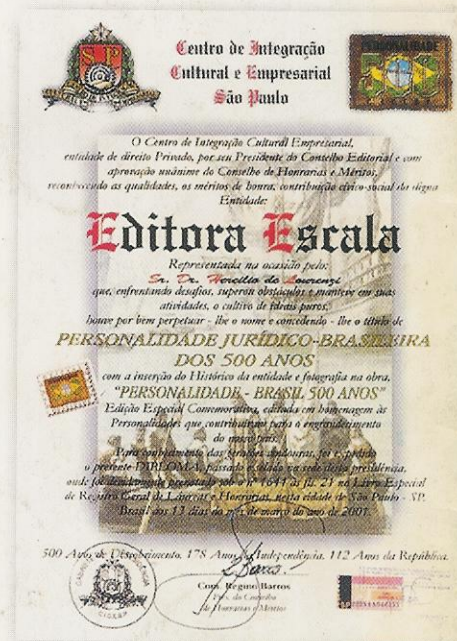 Centro de Integração
Cultural e Empresarial
São Paulo
PERSONALIDADE
500
O Centro de Integração Cultural Empresarial,
entidade de direito Privado, por seu Presidente do Conselho Editorial e com
aprovação unânime do Conselho de Honrarias e Méritos,
reconhecendo as qualidades, os méritos de honra, contribuição cívico-social da digna
Entidade:
Editora Escala
Representada na ocasião pelo:
Sr. Dr. Hercílio de Lourenzi
que, enfrentando desafios, superou obstáculos e manteve em suas
atividades, o cultivo de ideais puros,
houve por bem perpetuar - lhe o nome e concedendo - lhe o título de
PERSONALIDADE JURÍDICO-BRASILEIRA
DOS 500 ANOS
com a inserção do Histórico da entidade e fotografia na obra,
"PERSONALIDADE - BRASIL 500 ANOS"
Edição Especial Comemorativa, editada em homenagem às
Personalidades que contribuíram para o engrandecimento
do nosso país.
Para conhecimento das gerações vindouras, foi expedido
o presente DIPLOMA, passado e selado na sede desta presidência,
onde foi devidamente prenotado sob o nº 1641 às fls. 21 no Livro Especial
de Registro Geral de Láureas e Honrarias, nesta cidade de São Paulo - SP.
Brasil aos 13 dias do mês de março do ano de 2001.
500 Anos de Descobrimento. 178 Anos da Independência. 112 Anos da República.
Com. Regino Barros
Pres. do Conselho
de Honrarias e Méritos